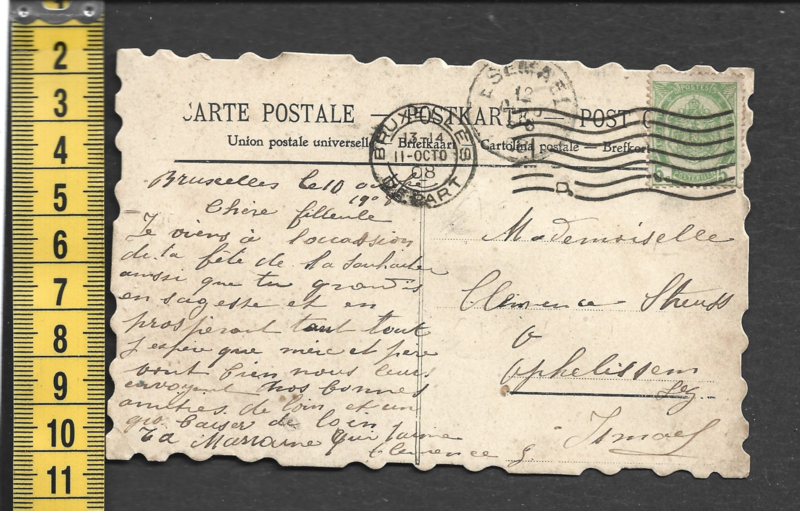 CARTE POSTALE — POSTKARTE — POST C
Union postale universelle Briefkaart Cartolina postale - Brefkort
BRUXELLES
13-14
11-OCTO
08
DEPART
12
POSTERIJEN
5 5
Bruxelles le 10
1908
Chère filleule
Je viens à l'occassion
de ta fete de te souhaiter
aussi que tu grandis
en sagesse et en
prosperant tout
J'espère que mère et père
vont bien nous leurs
envoyent nos bonnes
amitiés de loin et un
gros baiser de loin
Ta Marraine qui t'aime
Clemence
Mademoiselle
Clemence
a
Ophelissem
lez
1
2
3
4
5
6
7
8
9
10
11